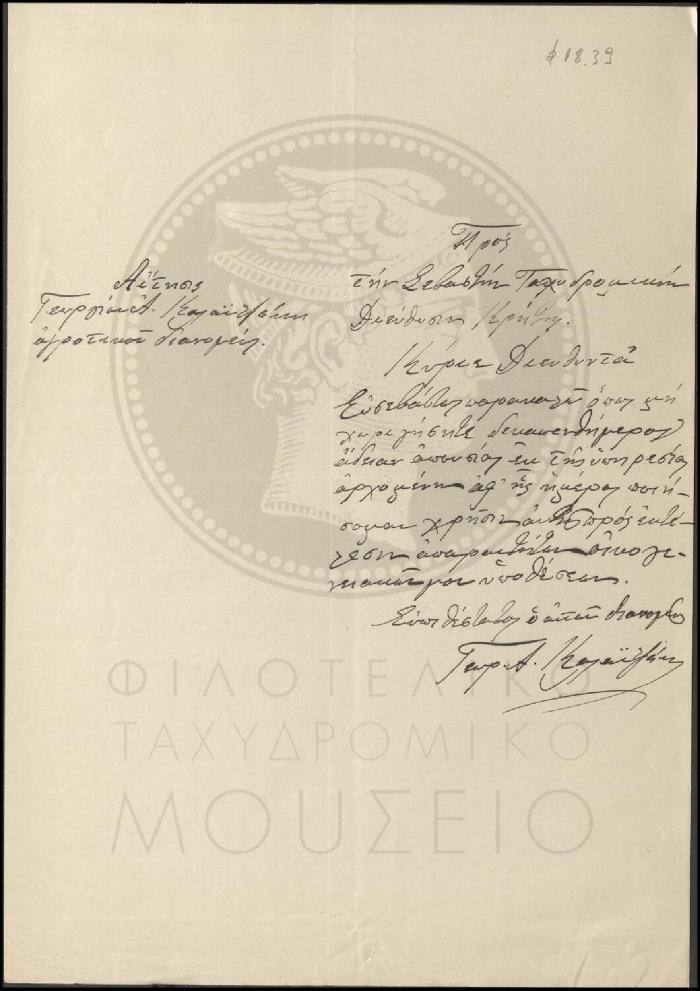 φ 18.39
Αἴτησις
Γεωργίου Α. Καλαϊτζάκη
ἀγροτικοῦ διανομέως.
Πρὸς
τὴν Σεβαστὴν Ταχυδρομικὴν
Διεύθυσιν Κρήτης.
Κύριε Διευθυντὰ
Εὐσεβάστως παρακαλῶ ὅπως μοὶ
χορηγήσητε δεκαπενθήμερον
ἄδειαν ἀπουσίας ἐκ τῆς ὑπηρεσίας
ἀρχομένην ἀφ' ἧς ἡμέρας ποιή-
σομαι χρῆσιν αὐτῆς πρὸς ἐκτέ-
λεσιν ἀπαραιτήτων οἰκογε-
νειακῶν μου ὑποθέσεων.
Εὐπειθέστατος ὁ αἰτῶν διανομεύς
Γεωρ. Α. Καλαϊτζάκης
ΦΙΛΟΤΕΛΙΚΟ
ΤΑΧΥΔΡΟΜΙΚΟ
ΜΟΥΣΕΙΟ